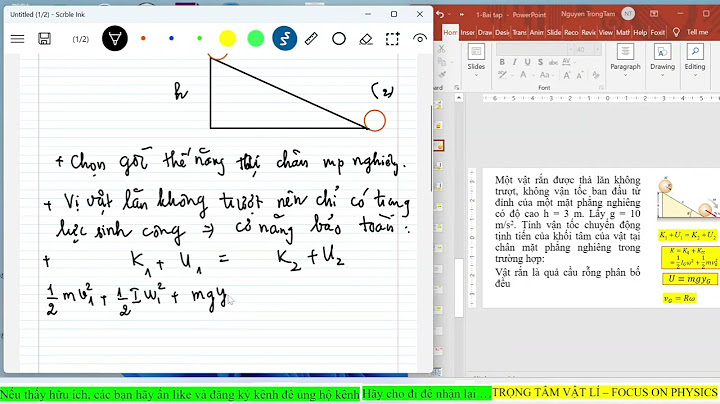 Untitled (1/2) - Scrble Ink
(1/2)
h
(2)
+ Chọn gốc thế năng tại chân mp nghiêng.
+ Vì vật lăn không trượt nên chỉ có trọng
lực sinh công ⇒ cơ năng bảo toàn:
+ K₁ + U₁ = K₂ + U₂
1/2 mv₁² + 1/2 Iω₁² + mgy
1-Bai tap - PowerPoint
Nguyen TrongTam NT
Hom Inser Draw Desi Trans Anim Slide Reco Revi View Foxit Tell me
Paragraph Drawing Editing
Một vật rắn được thả lăn không
trượt, không vận tốc ban đầu từ
đỉnh của một mặt phẳng nghiêng
có độ cao h = 3 m. Lấy g = 10
m/s². Tính vận tốc chuyển động
tịnh tiến của khối tâm của vật tại
chân mặt phẳng nghiêng trong
trường hợp:
Vật rắn là quả cầu rỗng phân bố
đều
K₁ + U₁ = K₂ + U₂
U = mgy_G
v_G = Rω
Nếu thấy hữu ích, các bạn hãy ấn like và đăng ký kênh để ủng hộ kênh
Hãy cho đi để nhận lại …
TRỌNG TÂM VẬT LÍ – FOCUS ON PHYSICS